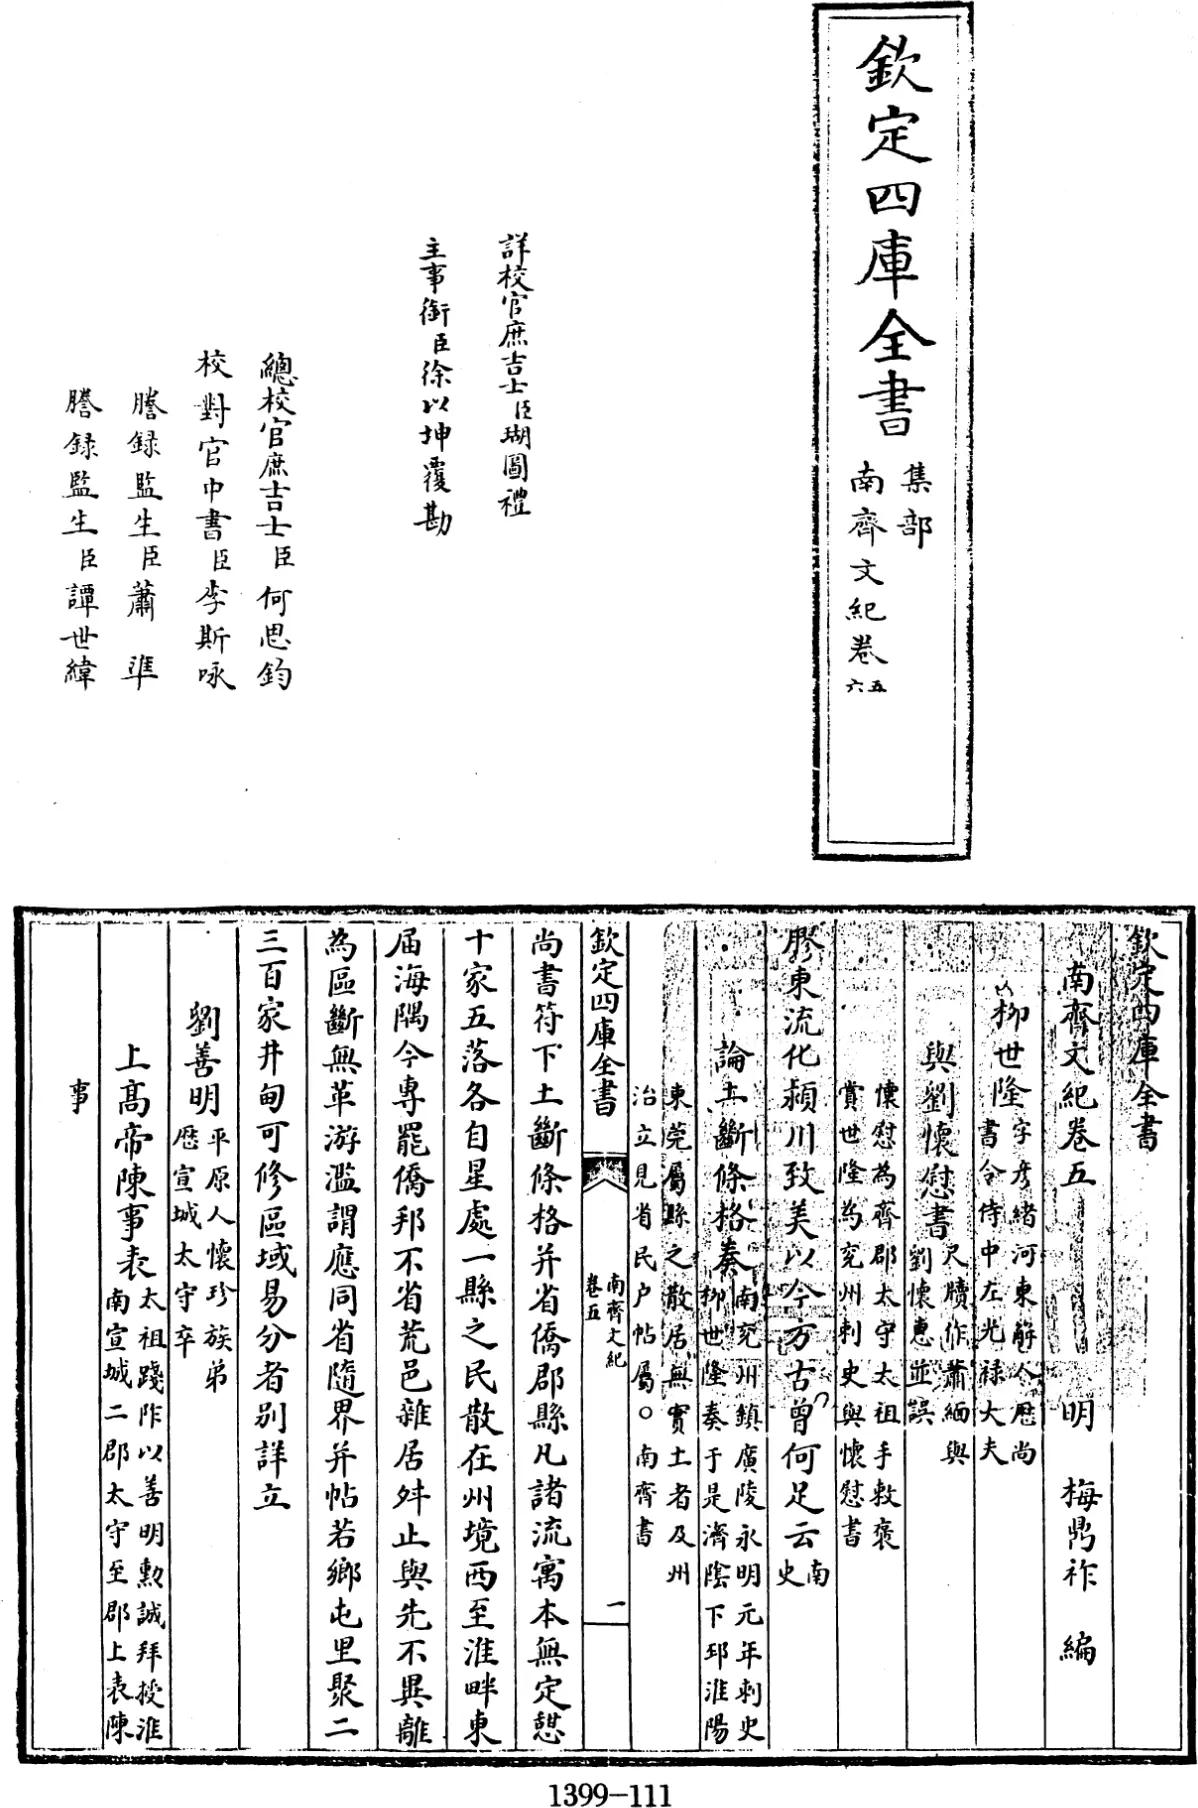 欽定四庫全書
集部
南齊文紀卷五六
詳校官庶吉士臣瑚圖禮
主事銜臣徐以坤覆勘
總校官庶吉士臣何思鈞
校對官中書臣李斯咏
謄録監生臣蕭準
謄録監生臣譚世緯
欽定四庫全書
南齊文紀卷五
明 梅鼎祚 編
柳世隆字彥緒河東解人歷尚
書令侍中左光祿大夫
與劉懷慰書尺牘作蕭緬與
劉懷惠並誤
懷慰為齊郡太守太祖手敕褒
賞世隆為兖州刺史與懷慰書
膠東流化潁川致美以今方古曾何足云南
史
論土斷條格奏南兖州鎮廣陵永明元年刺史
柳世隆奏于是濟陰下邳淮陽
東莞屬縣之散居無實土者及州
治立見省民户帖屬○南齊書
欽定四庫全書
南齊文紀
卷五
一
尚書符下土斷條格并省僑郡縣凡諸流寓本無定憩
十家五落各自星處一縣之民散在州境西至淮畔東
届海隅今專罷僑邦不省荒邑雜居舛止與先不異離
為區斷無革游濫謂應同省隨界并帖若鄉屯里聚二
三百家井甸可修區域易分者别詳立
劉善明平原人懷珍族弟
歷宣城太守卒
上高帝陳事表太祖踐阼以善明勲誠拜授淮
南宣城二郡太守至郡上表陳
事
1399-111